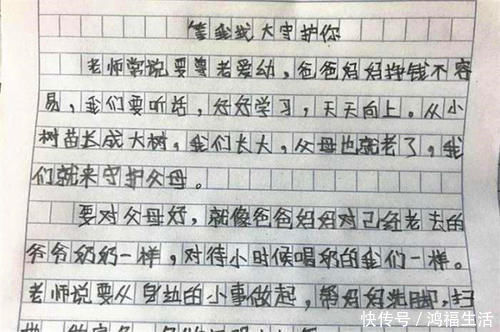 等我长大守护你
老师常说要尊老爱幼，爸爸妈妈挣钱不容
易，我们要听话，好好学习，天天向上。从小
树苗长成大树。我们长大，父母也就老了，我
们就来守护父母。
要对父母好，就像爸爸妈妈对已经老去的
爷爷奶奶一样，对待小时候喝奶的我们一样。
老师说要从身边的小事做起，帮妈妈洗脚，扫
快传号/鸿福生活